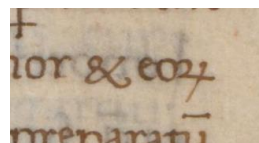 ior & eoꝝ
preparatū